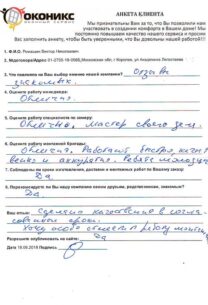 ОКОНИКС
АНКЕТА КЛИЕНТА
Мы признательны Вам за то, что Вы позволили нам
участвовать в создании комфорта в Вашем доме! Мы
постоянно повышаем качество нашего сервиса и просим
Вас заполнить анкету, чтобы быть уверенными, что Вы довольны нашей работой!!!
1. Ф.И.О. Виктор Николаевич
2. №договора/Адрес: Московская обл, г Королев,
3. Что повлияло на Ваш выбор именно нашей компании? Отзывы
знакомых.
4. Оцените работу менеджера:
Отлично.
5. Оцените работу специалиста по замеру:
Отлично. Мастер своего дела.
6. Оцените работу монтажной бригады:
Отлично. Работают быстро, качест-
венно и аккуратно. Ребята молодцы
7. Соблюдены ли сроки изготовления, доставки и монтажа работ по Вашему заказу:
Да.
8. Порекомендуете ли Вы нашу компанию своим друзьям, родственникам, знакомым?
Да.
Ваш отзыв: Сделано качественно и в согла-
сованные сроки.
Хочу особо отметить работу
Разрешите опубликовать на сайте: Да
Дата 18.09.2018 Подпись